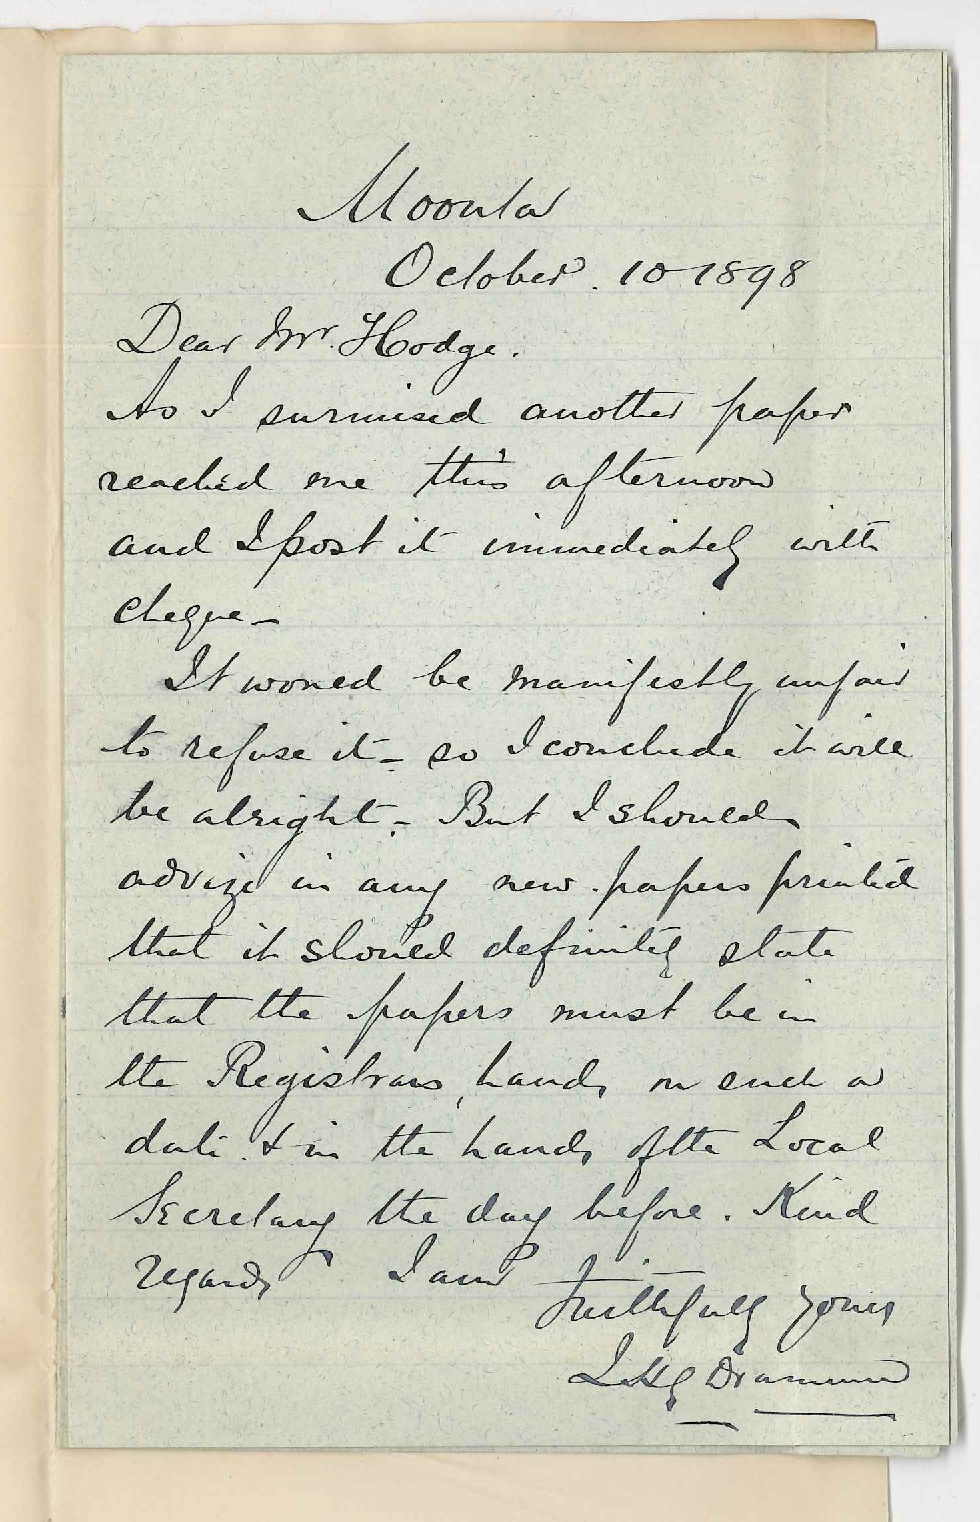 Moonta
October. 10 1898
Dear Mr. Hodge.
As I surmised another paper
reached me this afternoon
and I post it immediately with
cheque —
It would be manifestly unfair
to refuse it — so I conclude it will
be alright. — But I should
advize in any new papers printed
that it should definitely state
that the papers must be in
the Registrars hands on such a
date. & in the hands of the Local
Secretary the day before. Kind
regards I am
Faithfully yours